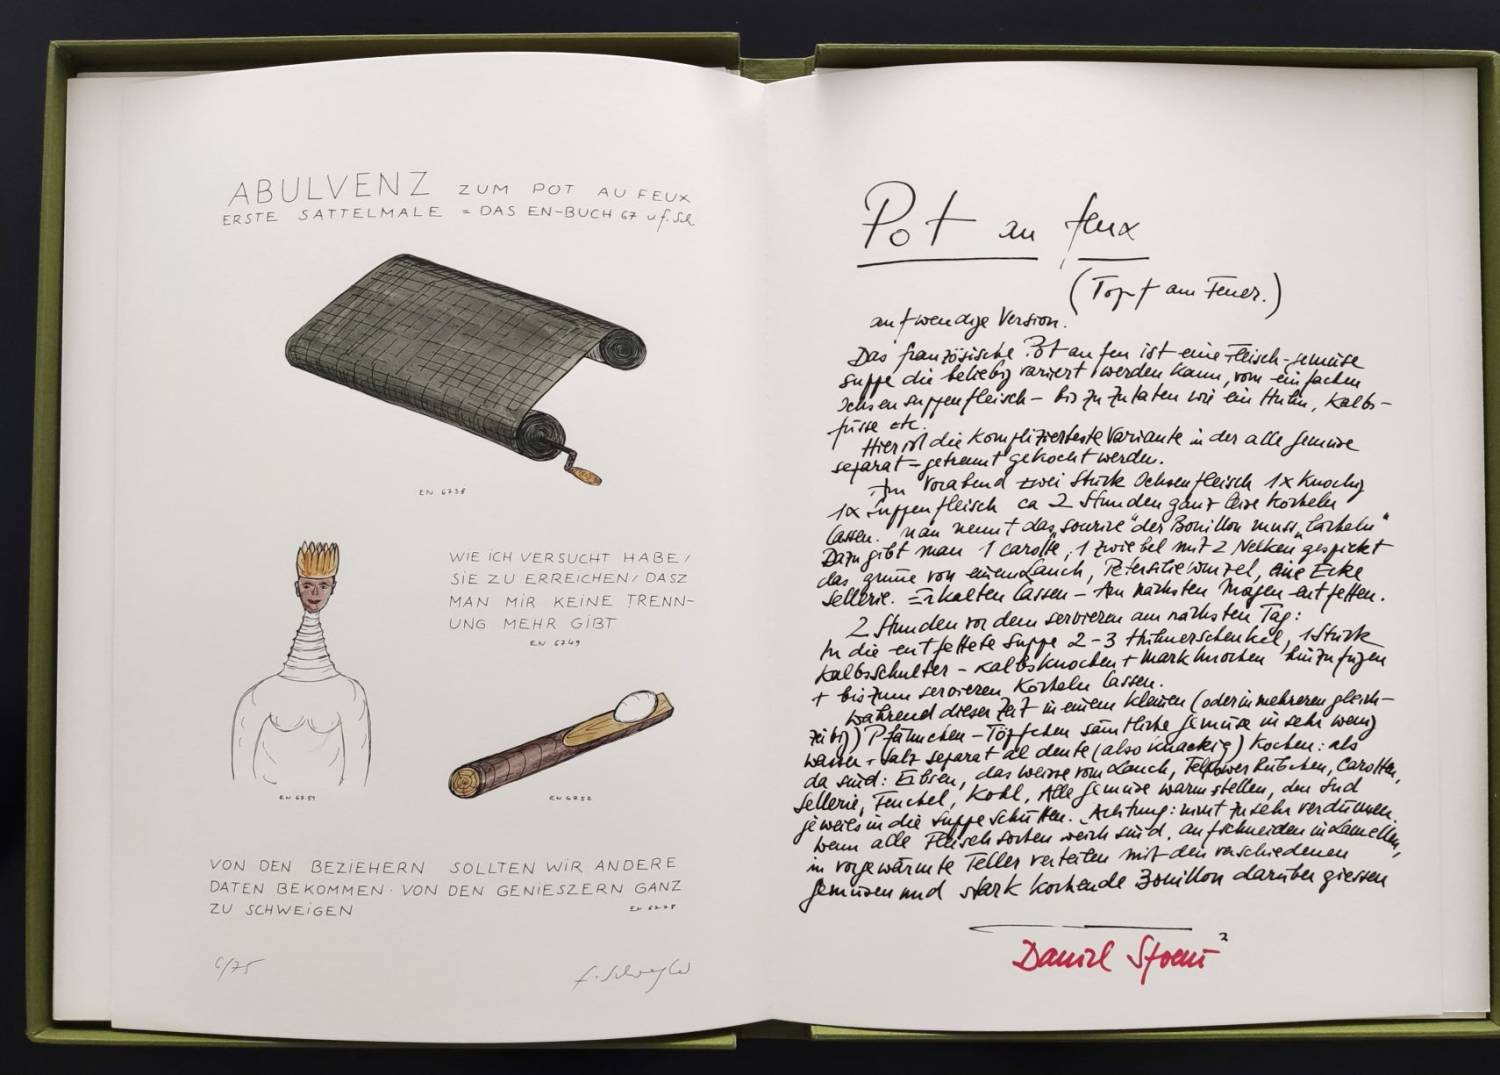 ABULVENZ ZUM POT AU FEUX
ERSTE SATTELMALE = DAS EN-BUCH 67 u.f.Sch
EN 6738
WIE ICH VERSUCHT HABE/
SIE ZU ERREICHEN/DASZ
MAN MIR KEINE TRENN-
UNG MEHR GIBT
EN 6749
EN 6751
EN 6752
VON DEN BEZIEHERN SOLLTEN WIR ANDERE
DATEN BEKOMMEN · VON DEN GENIESZERN GANZ
ZU SCHWEIGEN
6/75
Pot au feux
(Topf am Feuer.)
aufwendige Version.
Das französische Pot au feu ist eine Fleisch-gemüse
suppe die beliebig variert werden kann, vom einfachen
Ochsensuppenfleisch – bis zu Zutaten wie ein Huhn, Kalbs-
füsse etc.
Hier ist die komplizierteste Variante in der alle Gemüse
separat – getrennt gekocht werden.
Am Vorabend zwei Stück Ochsenfleisch 1x Knochig
1x Suppenfleisch ca 2 Stunden ganz leise köcheln
lassen. Man nennt das „sourire" der Bouillon muss „lächeln"
Dazu gibt man 1 carotte, 1 Zwiebel mit 2 Nelken gespickt
das grüne von einem Lauch, Petersiliewurzel, eine Ecke
Sellerie. Erkalten lassen – Am nächsten Morgen entfetten.
2 Stunden vor dem servieren am nächsten Tag:
In die entfettete Suppe 2-3 Hühnerschenkel, 1 Stück
Kalbsschulter – Kalbsknochen + Markknochen hinzufügen
+ bis zum servieren köcheln lassen.
Während dieser Zeit in einem kleinen (oder in mehreren gleich-
zeitig) Pfännchen – Töpfchen sämtliche Gemüse in sehr wenig
wasser + salz separat al dente (also knackig) kochen: als
da sind: Erbsen, das weisse vom Lauch, Teltower Rübchen, Carotten,
Sellerie, Fenchel, Kohl, Alle Gemüse warmstellen, den Sud
jeweils in die Suppe schütten. Achtung: nicht zu sehr verdünnen.
Wenn alle Fleischsorten weich sind, aufschneiden in Lamellen,
in vorgewärmte Teller verteilen mit den verschiedenen
Gemüsen und stark kochende Bouillon darüber giessen
Daniel Spoerri